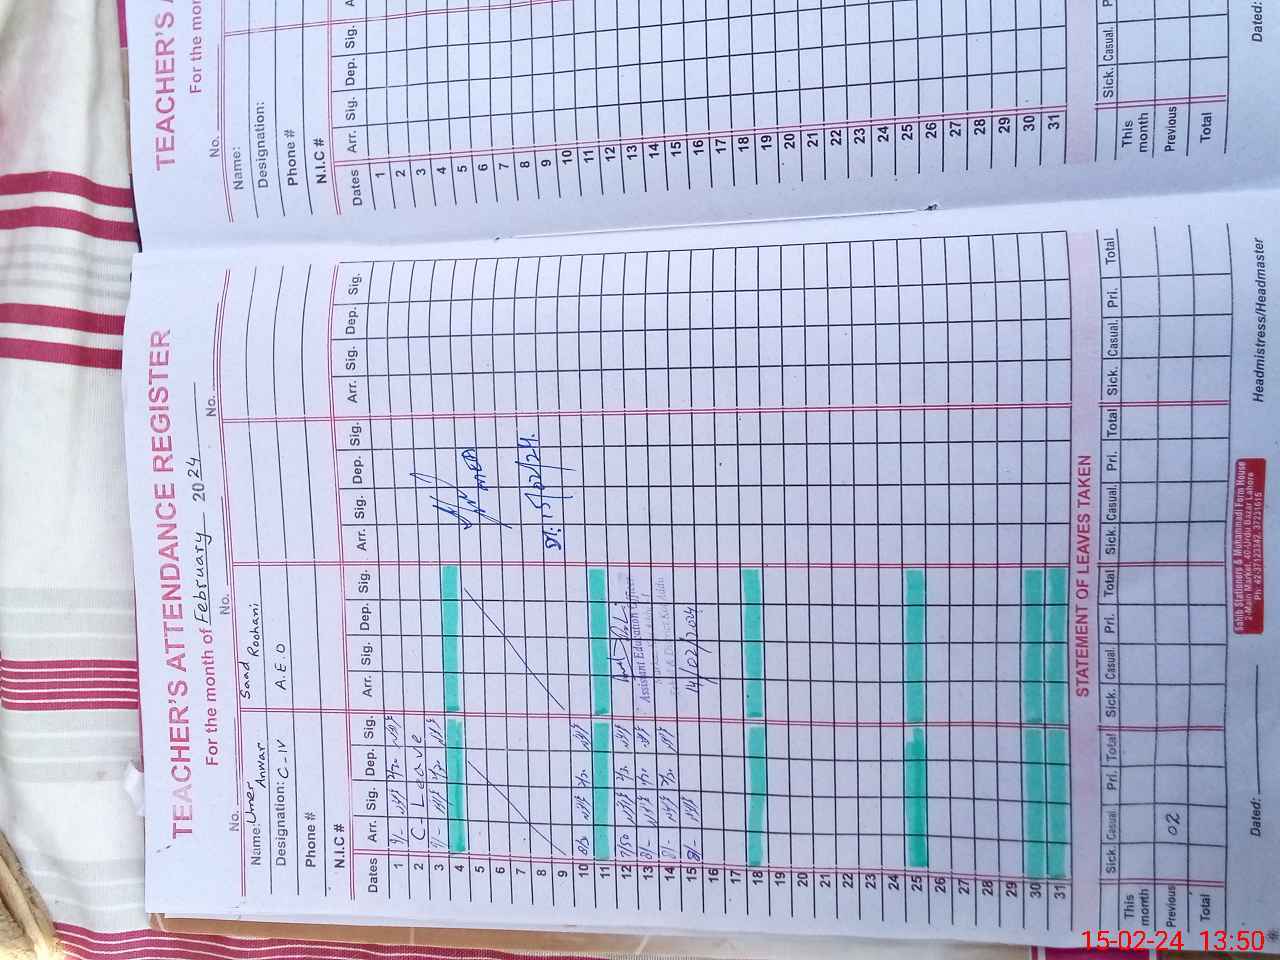 TEACHER'S ATTENDANCE REGISTER
For the month of February 2024
No. No. No.
Name: Umer Anwar Saad Roohani
Designation: C-IV A.E.O
Phone #
N.I.C #
Dates Arr. Sig. Dep. Sig. Arr. Sig. Dep. Sig. Arr. Sig. Dep. Sig. Arr. Sig. Dep. Sig.
1
2 C-Leave
3
4
5
6
7
8
9
10
11
12 7/50
13 8/-
14 8/-
15 8/-
16
17
18
19
20
21
22
23
24
25
26
27
28
29
30
31
MEA
Dt: 15/02/24.
Assistant Education Officer
14/02/2024
STATEMENT OF LEAVES TAKEN
Sick. Casual. Pri. Total Sick. Casual. Pri. Total Sick. Casual. Pri. Total Sick. Casual. Pri. Total
This month
Previous 02
Total
Dated:
Headmistress/Headmaster
Sahib Stationers & Muhammadi Form House
2-Main Market, 40-Urdu Bazar Lahore
Ph: 42-37123342, 37231615
TEACHER'S A
For the mon
No.
Name:
Designation:
Phone #
N.I.C #
Dates Arr. Sig. Dep. Sig. A
1
2
3
4
5
6
7
8
9
10
11
12
13
14
15
16
17
18
19
20
21
22
23
24
25
26
27
28
29
30
31
Sick. Casual. P
This month
Previous
Total
Dated:
15-02-24 13:50